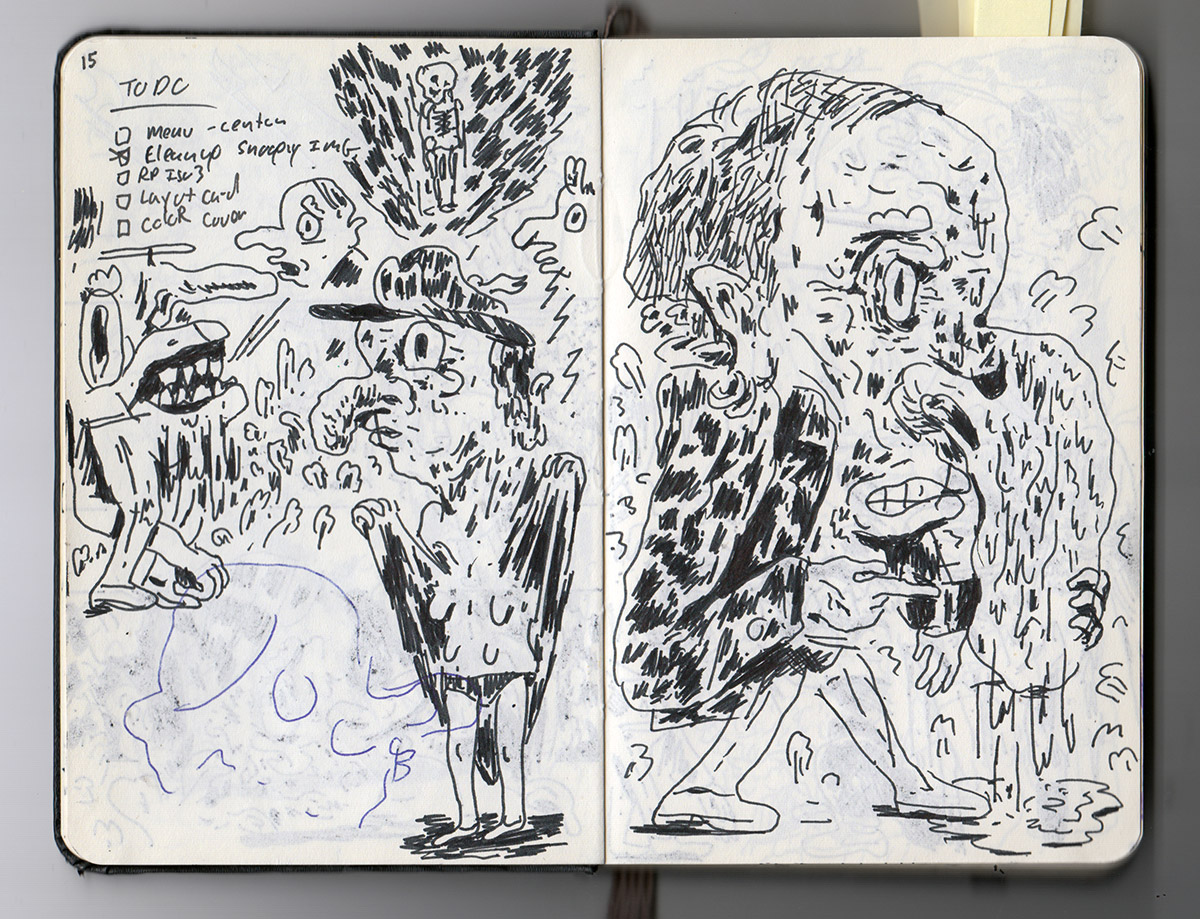 15
TO DO
Menu - center
Cleanup Snoopy Img
RP Isu 3
Layout Card
Color Cover